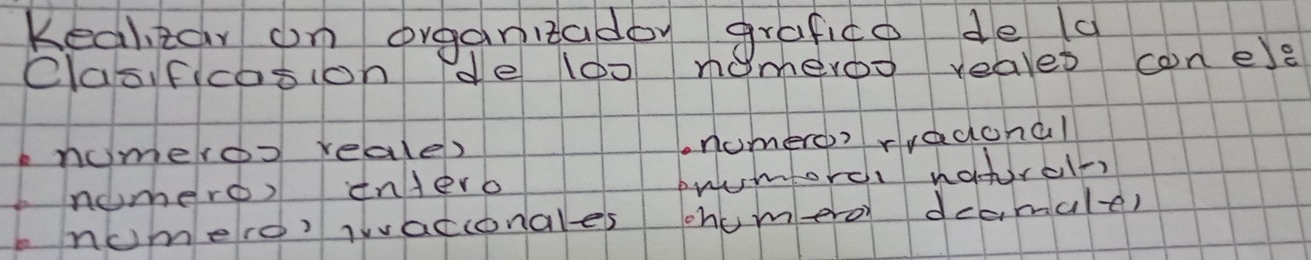 Realizar un organizador grafico de la
Clasificasion de los números reales con ele
• numeros reales
• numeros entero
• numeros irracionales
• numeros rracional
• numeros naturales
• numeros dcamales